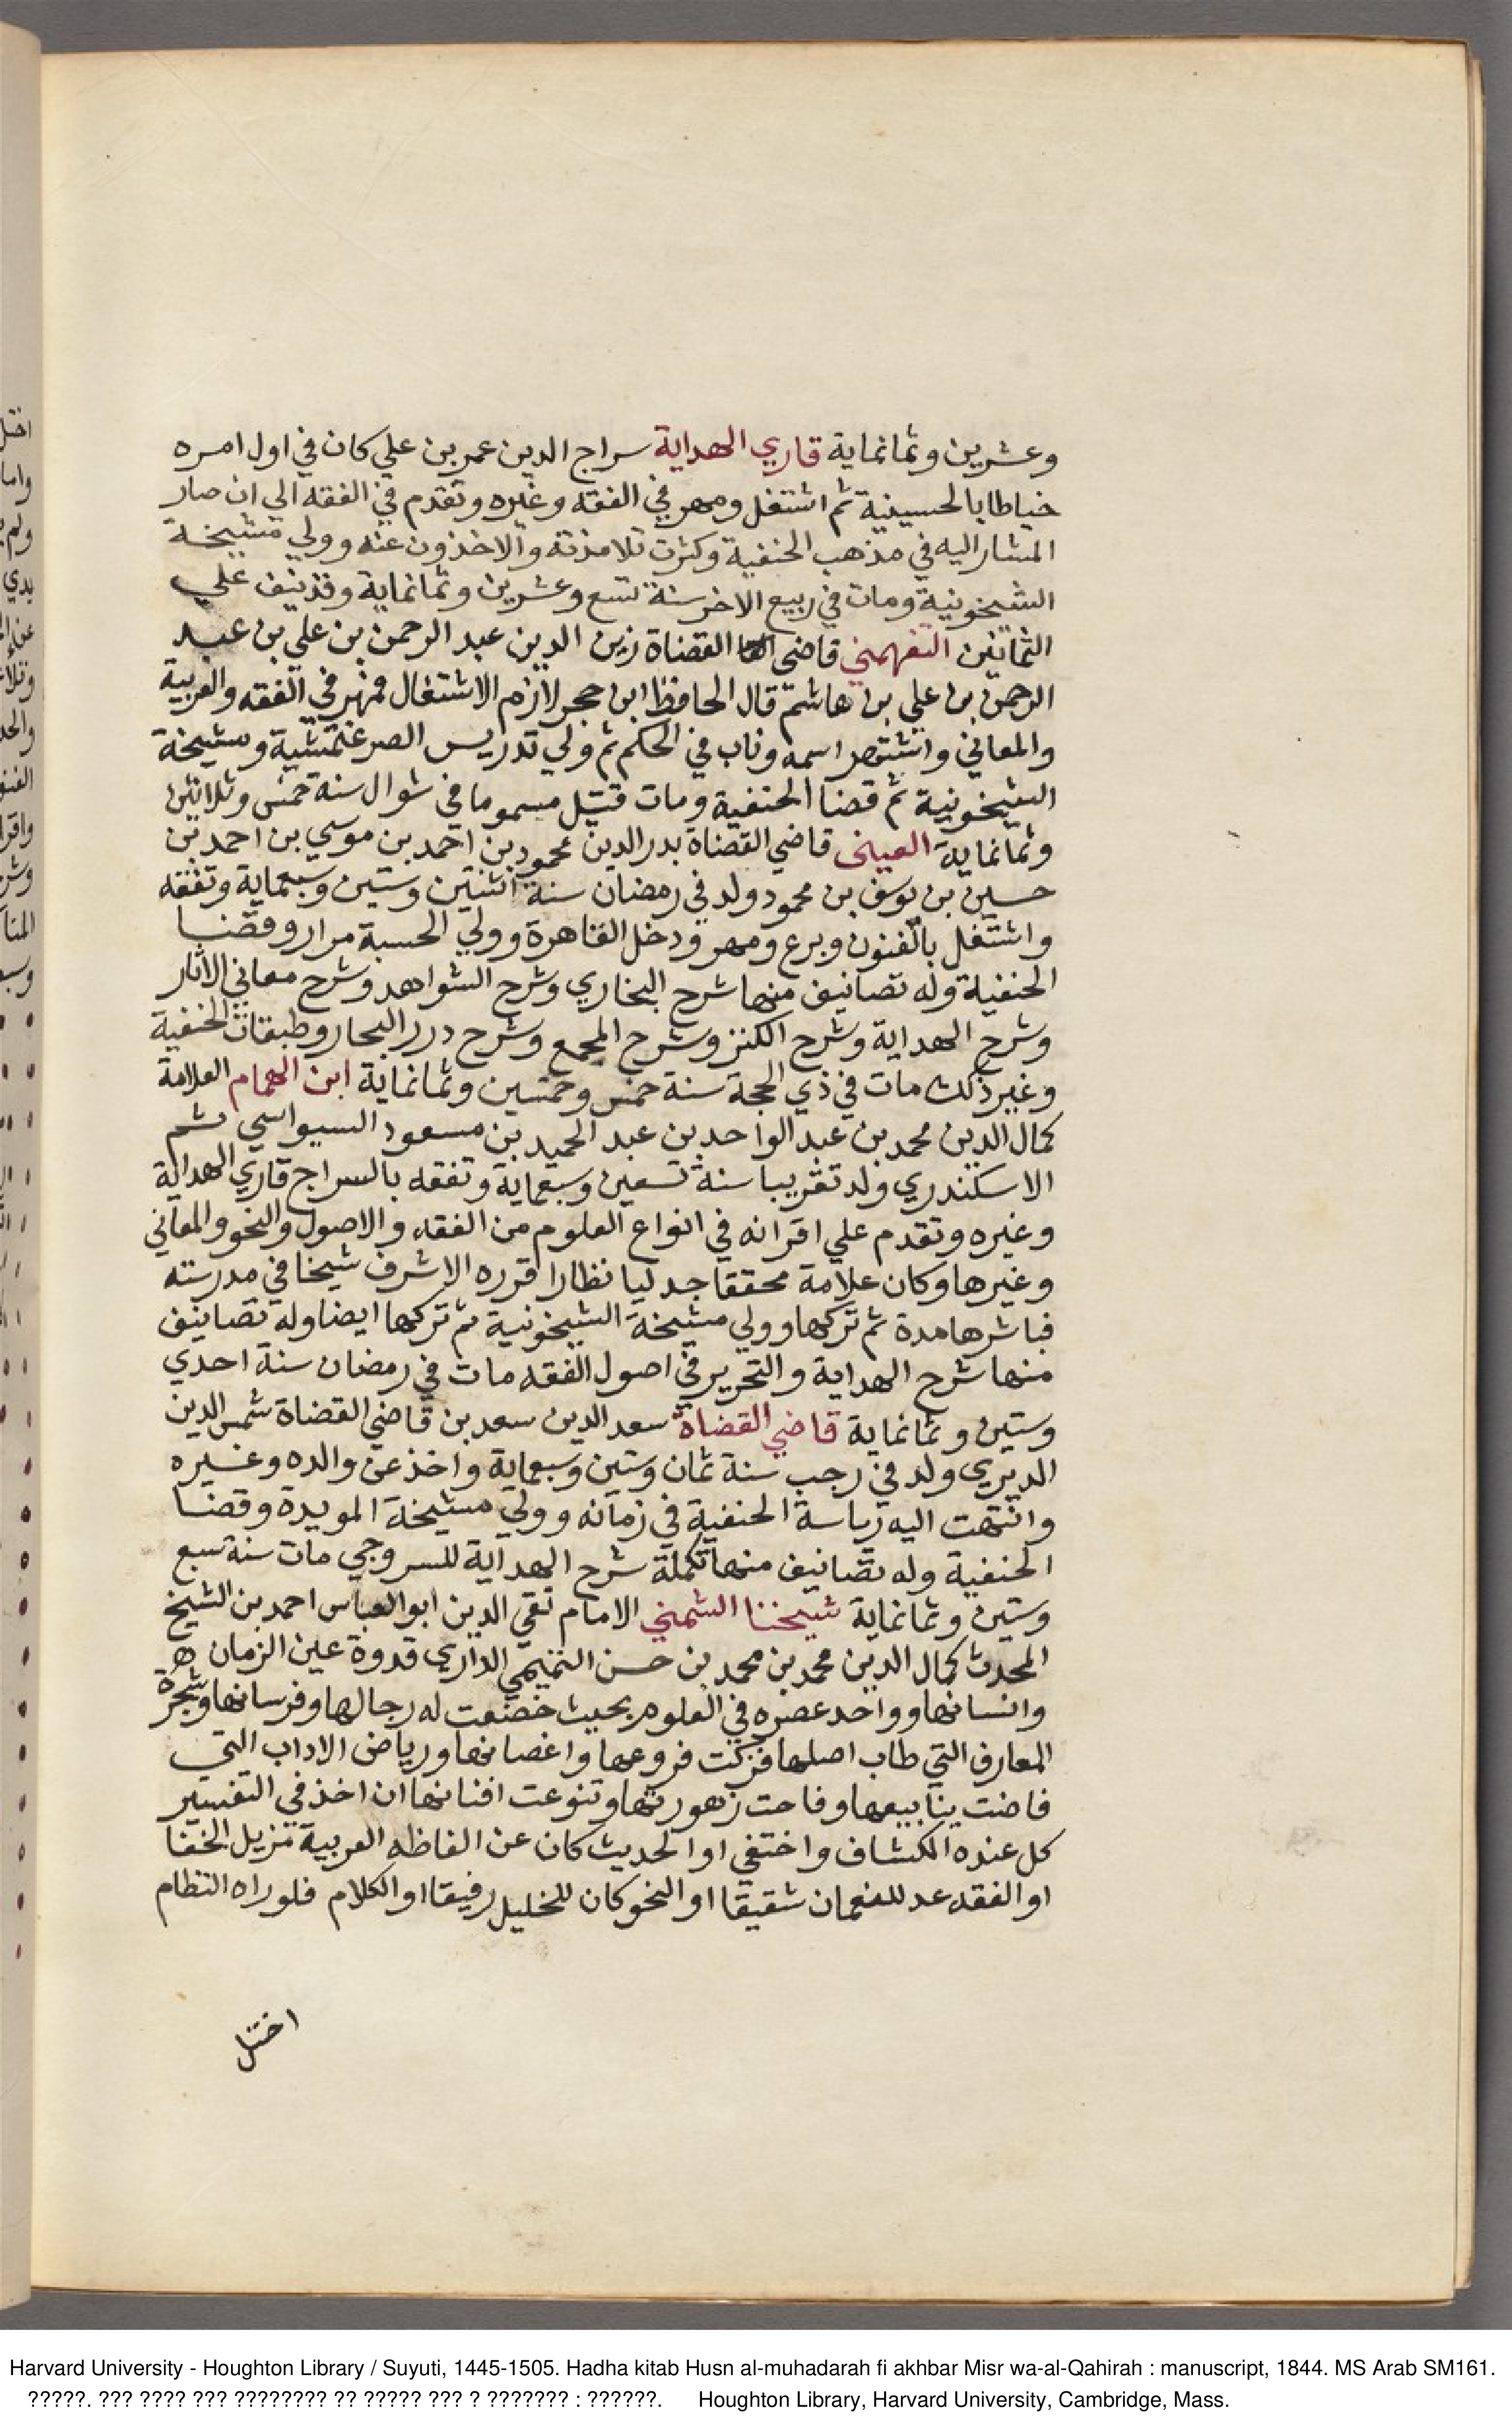 وعشرين وثمانماية قاري الهداية سراج الدين عمر بن علي كان في اول امره
خياطا بالحسينية ثم اشتغل ومهر في الفقه وغيره وتقدم في الفقه الي ان صار
المشار اليه في مذهب الحنفية وكثرت تلامذته والاخذون عنه وولي مشيخة
الشيخونية ومات في ربيع الاخر سنة تسع وعشرين وثمانماية وقد نيف علي
الثمانين التفهمني قاضي القضاة زين الدين عبد الرحمن بن علي بن عبد
الرحمن بن علي بن هاشم قال الحافظ ابن حجر لازم الاشتغال فمهر في الفقه والعربية
والمعاني واشتهر اسمه وناب في الحكم ثم ولي تدريس الصرغتمشية ومشيخة
الشيخونية ثم قضا الحنفية ومات قتيل مسموما في شوال سنة خمس وثلاثين
وثمانماية العيني قاضي القضاة بدر الدين محمود بن احمد بن موسي بن احمد بن
حسين بن يوسف بن محمود ولد في رمضان سنة اثنتين وستين وسبعماية وتفقه
واشتغل بالفنون وبرع ومهر ودخل القاهرة وولي الحسبة مرار وقضا
الحنفية وله تصانيف منها شرح البخاري وشرح الشواهد وشرح معاني الاثار
وشرح الهداية وشرح الكنز وشرح المجمع وشرح درر البحار وطبقات الحنفية
وغير ذلك مات في ذي الحجة سنة خمس وخمسين وثمانماية ابن الهمام العلامة
كمال الدين محمد بن عبد الواحد بن عبد الحميد بن مسعود السيواسي ثم
الاسكندري ولد تقريبا سنة تسعين وسبعماية وتفقه بالسراج قاري الهداية
وغيره وتقدم علي اقرانه في انواع العلوم من الفقه والاصول والنحو والمعاني
وغيرها وكان علامة محققا جدليا نظارا قرره الاشرف شيخا في مدرسته
فباشرها مدة ثم تركها وولي مشيخة الشيخونية ثم تركها ايضا وله تصانيف
منها شرح الهداية والتحرير في اصول الفقه مات في رمضان سنة احدي
وستين وثمانماية قاضي القضاة سعد الدين سعد بن قاضي القضاة شمس الدين
الديري ولد في رجب سنة ثمان وستين وسبعماية واخذ عن والده وغيره
وانتهت اليه رياسة الحنفية في زمانه وولي مشيخة المويدة وقضا
الحنفية وله تصانيف منها تكملة شرح الهداية للسروجي مات سنة سبع
وستين وثمانماية شيخنا الشمني الامام تقي الدين ابو العباس احمد بن الشيخ
المحدث كمال الدين محمد بن محمد بن حسن التميمي الداري قدوة عين الزمان ه
وانسانها وواحد عصره في العلوم بحيث خضعت له رجالها وفرسانها وشجرة
المعارف التي طاب اصلها فزكت فروعها واغصانها ورياض الاداب التي
فاضت ينابيعها وفاحت زهورتها وتنوعت افنانها ان اخذ في التفسير
كل عنده الكشاف واختفي او الحديث كان عن الفاظه العربية مزيل الخفا
او الفقه عد للنعمان شقيقا او النحو كان للخليل رفيقا او الكلام فلو راه النظام
اختل
Harvard University - Houghton Library / Suyuti, 1445-1505. Hadha kitab Husn al-muhadarah fi akhbar Misr wa-al-Qahirah : manuscript, 1844. MS Arab SM161.
?????. ??? ???? ??? ???????? ?? ????? ??? ? ??????? : ??????. Houghton Library, Harvard University, Cambridge, Mass.